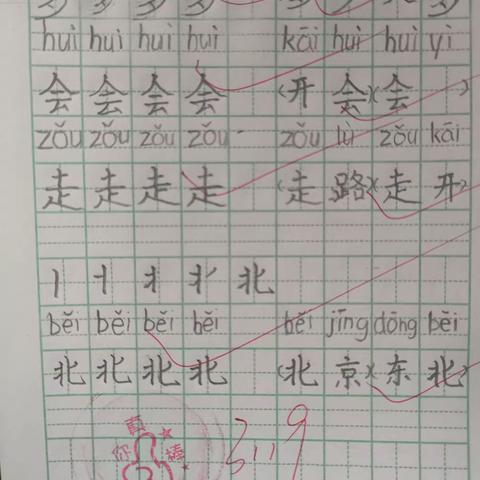 huì huì huì huì kāi huì huì yì
会 会 会 会 (开 会)(会 )
zǒu zǒu zǒu zǒu zǒu lù zǒu kāi
走 走 走 走 (走 路)(走 开)
北
běi běi běi běi běi jīng dōng běi
北 北 北 北 (北 京)(东 北)
你真棒